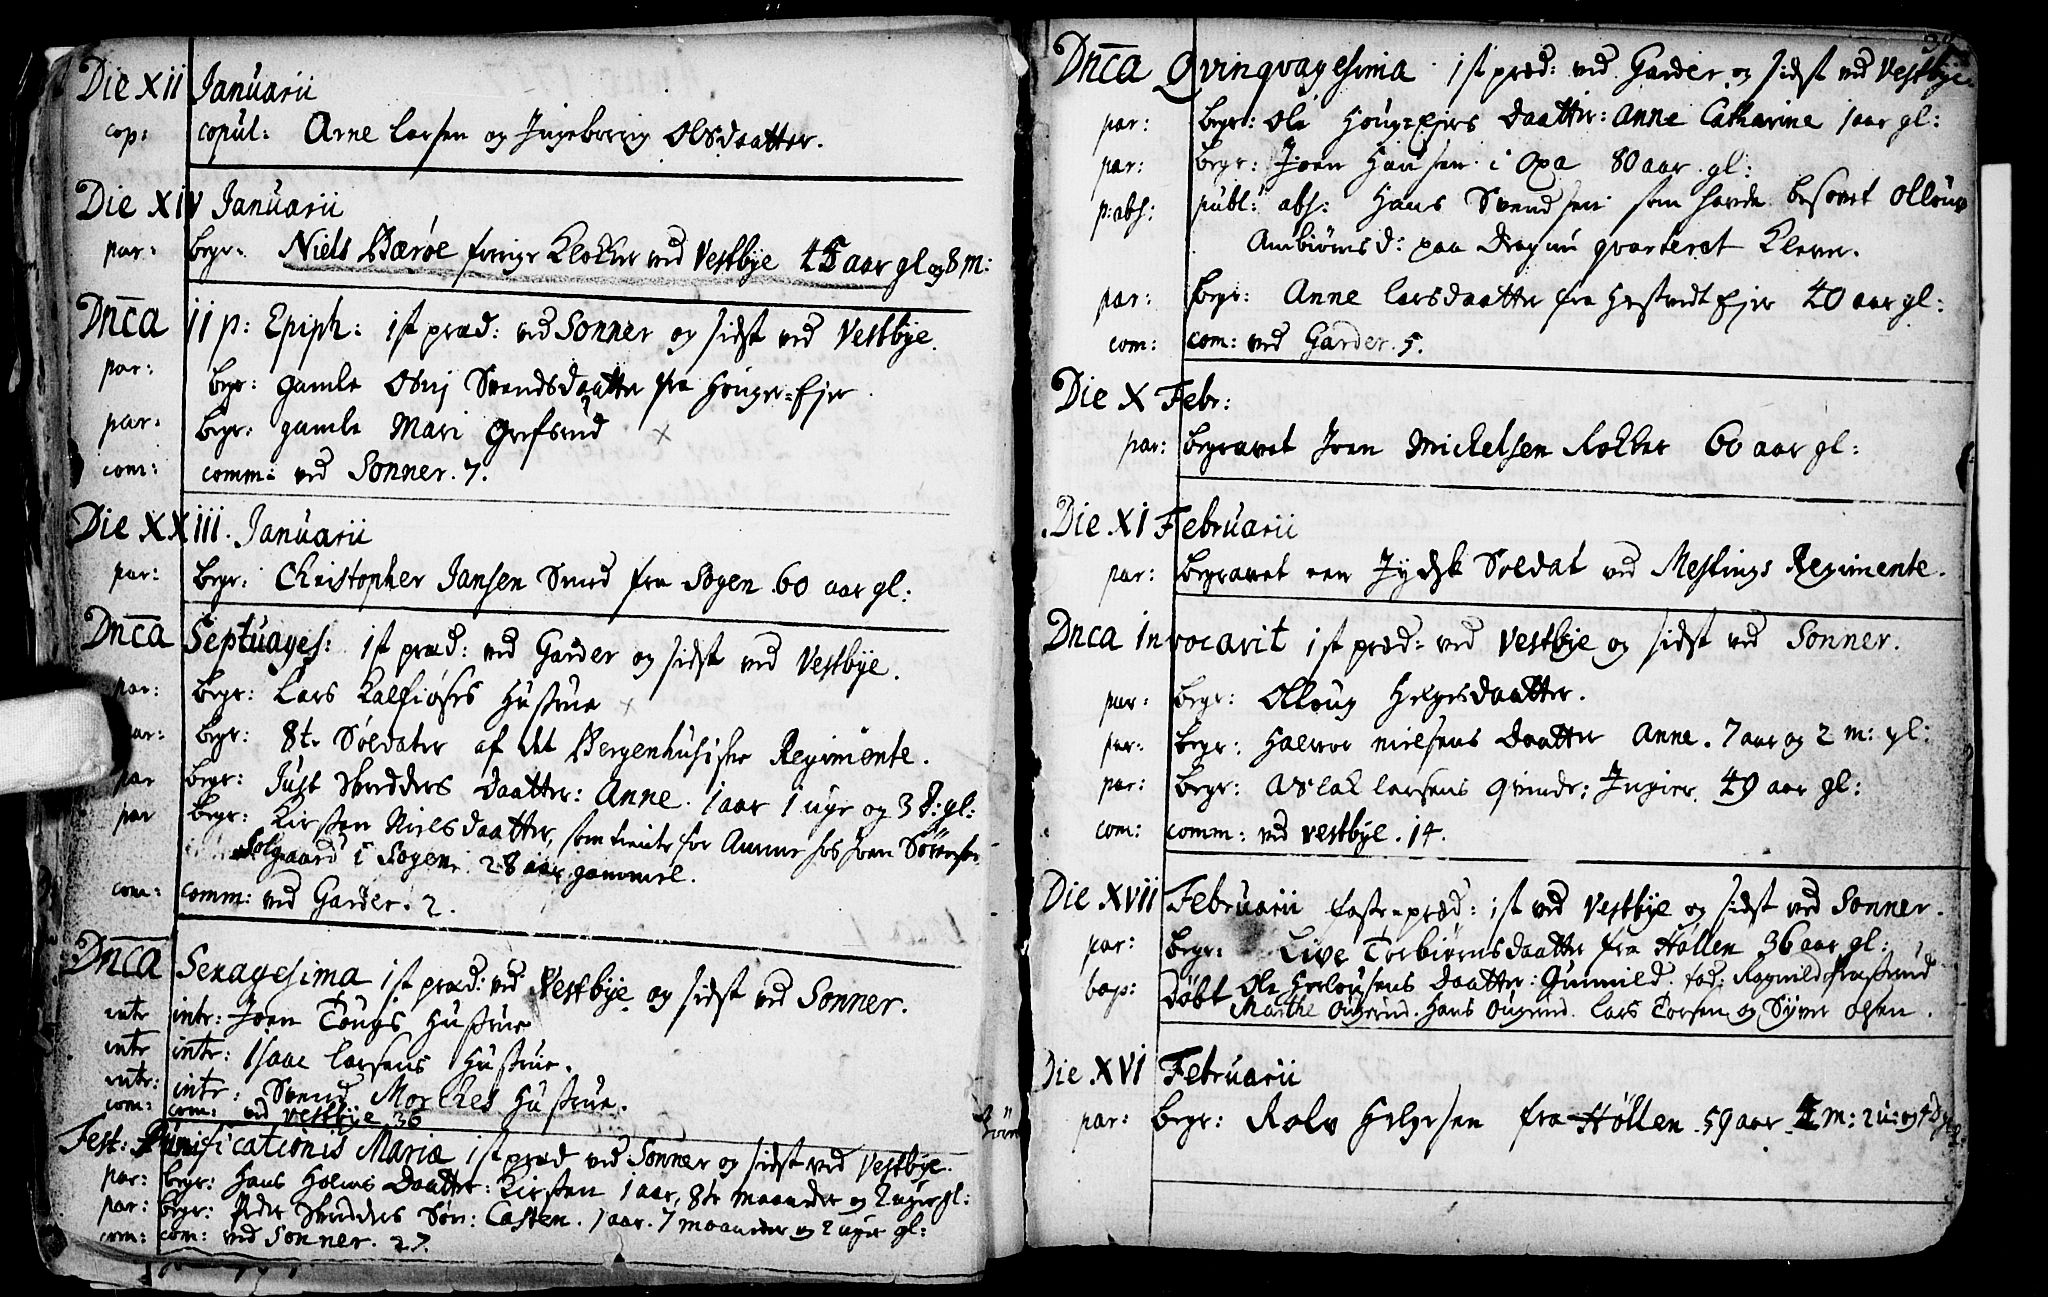 Die XII Januarii
cop: copul: Arne Larsen og Ingeborrig Olsdaatter.
Die XIV Januarii
par: begr: Niels Bærøe forrige Klokker ved Vestbye 45 aar gl og 8 m:
Dnca II p: Epiph: 1st præd: ved Sonner og sidst ved Vestbye.
par: begr: gamle Svendsdaatter fra Houger=Ejer
par: begr: gamle Mari Grefsrud
com: comm: ved Sonner. 7.
Die XXIII. Januarii
par: begr: Christopher Jansen Smed fra Sogen 60 aar gl:
Dnca Septuages: 1st præd: ved Garder og sidst ved Vestbye.
par: begr: Lars Kalfiøses Hustrue
par: begr: 8te Soldater af det Bergenhusiske Regimente.
par begr: Just Skredders Daatter: Anne. 1 aar 1 uge og 3 d: gl:
par begr: Kirsten Nielsdaatter, som tiente for Amme hos Joen Sørensen
Solgaard i Sogen. 28 aar gammel.
com: comm: ved Garder. 2.
Dnca Sexagesima 1st præd: ved Vestbye og sidst ved Sonner.
intr intr: Joen Tougs Hustrue
intr intr: Isaac Larsens Hustrue.
intr: intr: Svend Morkes Hustrue.
com: com: ved Vestbye 36
Fest: Purificationis Mariæ 1st præd ved Sonner og sidst ved Vestbye.
par: begr: Hans Holms Daatter: Kirsten 1 aar, 8te maaneder og 2 uger gl:
par: begr: Peder Skredders Søn: Casten. 1 aar. 7 maaneder og 2 uger gl:
com: com: ved Sonner. 27.
Dnca Qvinqvagesima 1st præd: ved Garder og sidst ved Vestbye.
par: begr: Ole Houg=Ejers Daatter: Anne Catharine 1 aar gl:
par: begr: Joen Hansen i Oxa 80 aar gl:
p: abs: publ: abs: Hans Svendsen som hafde besovet Olloug
Ambiørnsd: paa Dragun qvarteret Kleven.
par: begr: Anne Larsdaatter fra Hestvedt Ejer 40 aar gl:
com: com: ved Garder. 5.
Die X Febr:
par: begravet Joen Mickelsen Kolker 60 aar gl:
Die XI Februarii
par: begravet een Jydsk Soldat ved Mestings Regimente.
Dnca Invocavit 1st præd: ved Vestbye og sidst ved Sonner.
par: begr: Olloug Helgesdaatter.
par: begr: Halvor Nielsens Daatter Anne. 7 aar og 2 m: gl:
par: begr: Aslak Larsens qvinde: Ingier. 49 aar gl:
com: comm: ved Vestbye. 14.
Die XVII Februarii faste=præd: 1st ved Vestbye og sidst ved Sonner.
par: begr: Live Torbiørnsdaatter fra Høllen 36 aar gl:
bap: Døbt Ole Herlousens Daatter: Gunnild. fad: Ragnild
Marthe Ougerud. Hans Ougerud. Lars Torsen og Syver Olsen.
Die XVI Februarii
par: begr: Rolv Helgesen fra Høllen. 59 aar 4 m: 2 u: og 4 d: gl: